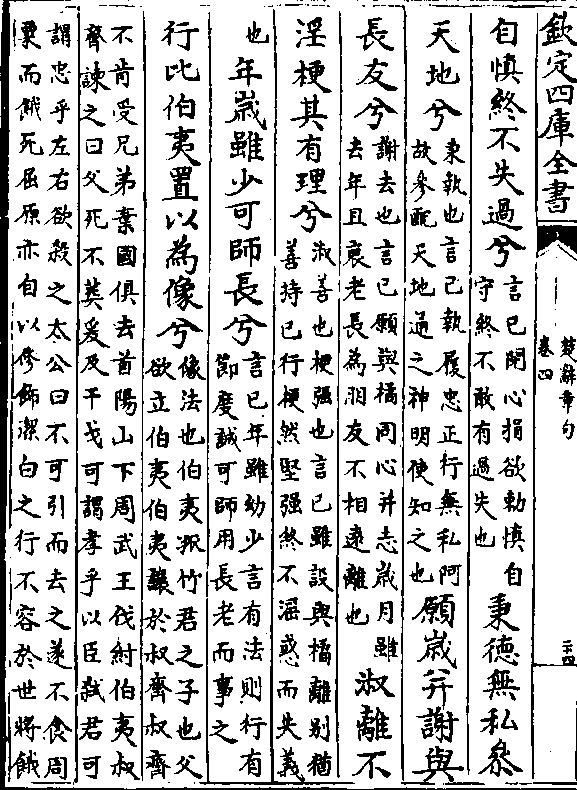 欽定四庫全書
楚辭章句
卷四
二十四
自慎終不失過兮言已閉心捐欲勅慎自守終不敢有過失也秉德無私參
天地兮秉執也言已執履忠正行無私阿故參配天地通之神明使知之也願歲并謝與
長友兮謝去也言已願與橘同心并志歲月雖去年且衰老長為朋友不相遠離也淑離不
淫梗其有理兮淑善也梗强也言已雖設與橘離別猶善持已行梗然堅强終不淫惑而失義
也年歲雖少可師長兮言已年雖幼少言有法則行有節度誠可師用長老而事之
行比伯夷置以為像兮像法也伯夷孤竹君之子也父欲立伯夷伯夷讓於叔齊叔齊
不肯受兄弟棄國俱去首陽山下周武王伐紂伯夷叔
齊諫之曰父死不葬爰及干戈可謂孝乎以臣弑君可
謂忠乎左右欲殺之太公曰不可引而去之遂不食周
粟而餓死屈原亦自以修飾潔白之行不容於世將餓